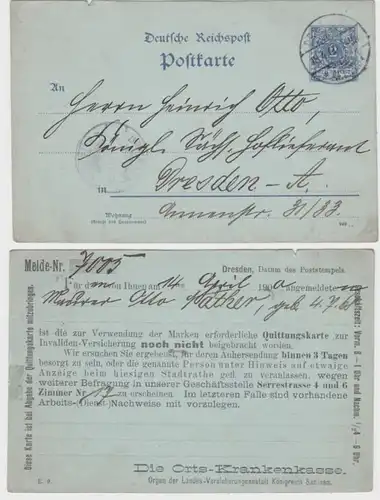 Deutsche Reichspost
Postkarte
An
Herrn Heinrich Otto,
Königl. Sächs. Hoflieferant
in Dresden-A.
Wohnung
(Straße und Hausnummer)
Annenstr. 31/33.
Melde-Nr. 7005
Dresden, Datum des Poststempels.
Für den von Ihnen am 14 ten April 190 angemeldeten
Maurer Otto geb. 4.7.
ist die zur Verwendung der Marken erforderliche Quittungskarte zur
Invaliden-Versicherung noch nicht beigebracht worden.
Wir ersuchen Sie ergebenst, für deren Anhersendung binnen 3 Tagen
besorgt zu sein, oder die genannte Person unter Hinweis auf etwaige
Anzeige beim hiesigen Stadtrathe gefl. zu veranlassen, wegen
weiterer Befragung in unserer Geschäftsstelle Serrestrasse 4 und 6
Zimmer Nr. 17 zu erscheinen. Im letzteren Falle sind vorhandene
Arbeits-(Dienst-)Nachweise mit vorzulegen.
Die Orts-Krankenkasse.
Organ der Landes-Versicherungsanstalt Königreich Sachsen.
Diese Karte ist bei Abgabe der Quittungskarte mitzubringen.
Geschäftszeit: Vorm. 8-1 Uhr und Nachm. -6 Uhr.